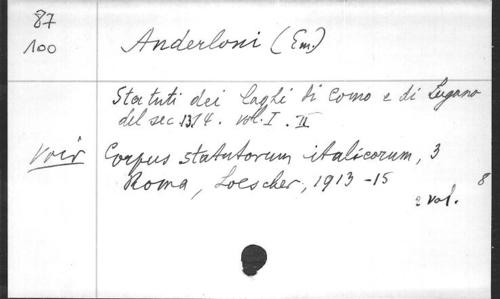 87
100
Anderloni (Em.)
Statuti dei laghi di Como e di Lugano
del sec. 1314. vol. I. II
voir Corpus statutorum italicorum, 3
Roma, Loescher, 1913-15
2 vol. 8